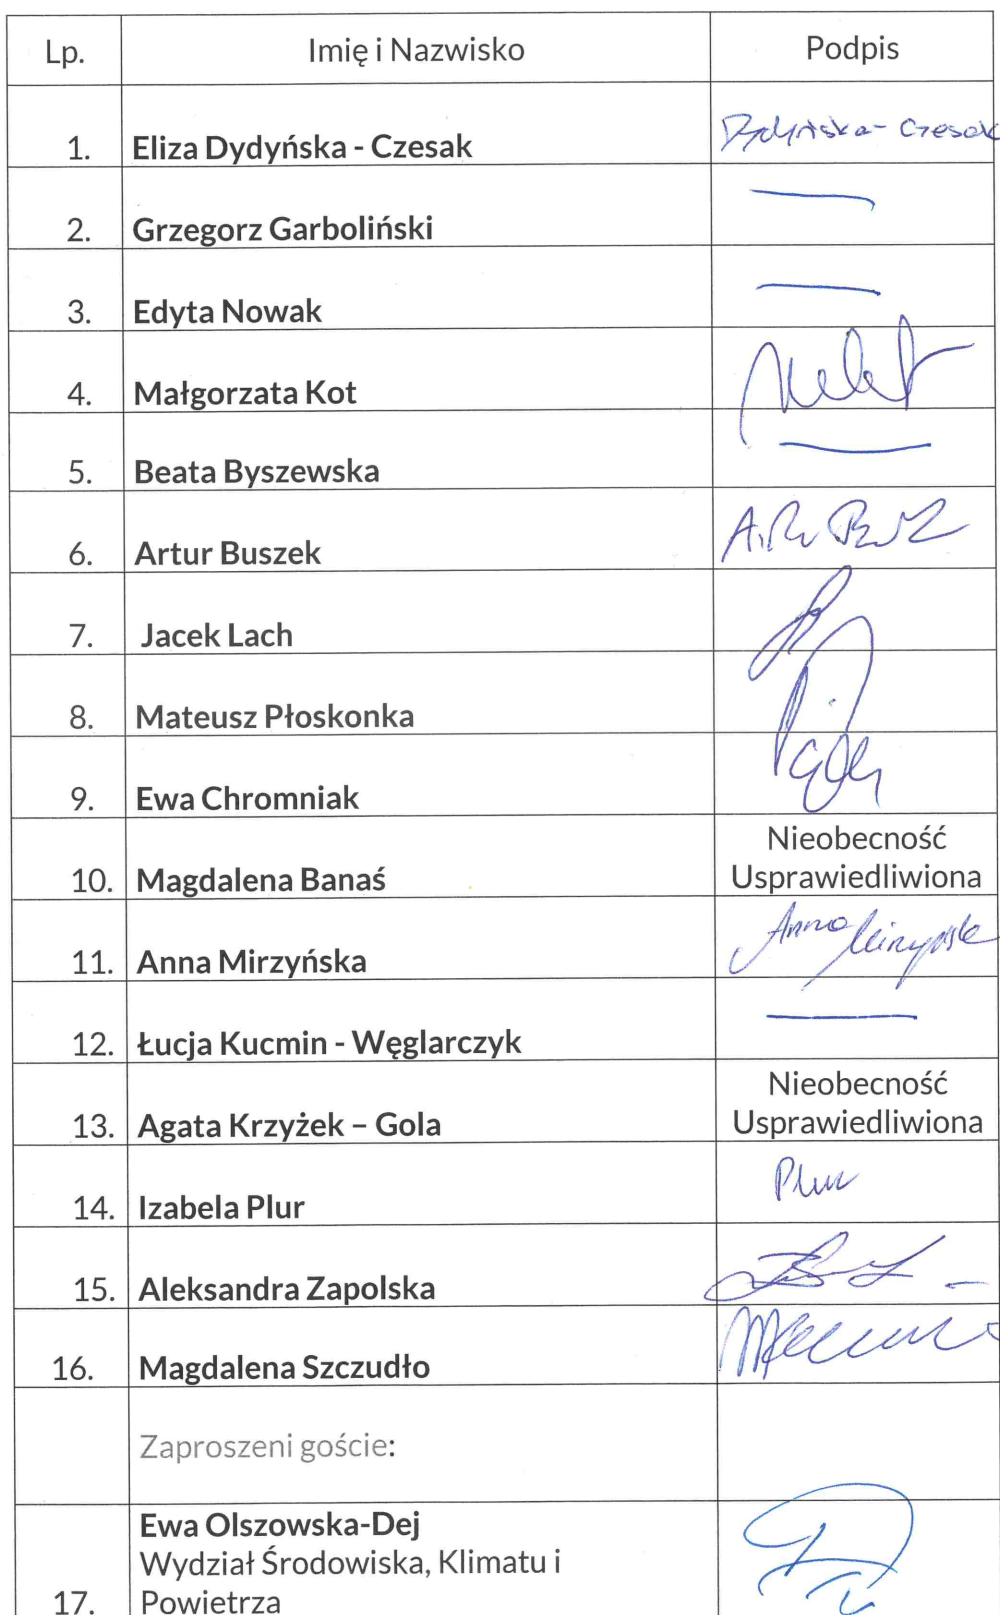 Lp. Imię i Nazwisko Podpis
1. Eliza Dydyńska - Czesak Dydyńska - Czesak
2. Grzegorz Garboliński
3. Edyta Nowak
4. Małgorzata Kot
5. Beata Byszewska
6. Artur Buszek
7. Jacek Lach
8. Mateusz Płoskonka
9. Ewa Chromniak
Nieobecność
10. Magdalena Banaś Usprawiedliwiona
11. Anna Mirzyńska Anna Mirzyńska
12. Łucja Kucmin - Węglarczyk
Nieobecność
13. Agata Krzyżek – Gola Usprawiedliwiona
14. Izabela Plur Plur
15. Aleksandra Zapolska
16. Magdalena Szczudło
Zaproszeni goście:
Ewa Olszowska-Dej
Wydział Środowiska, Klimatu i
17. Powietrza